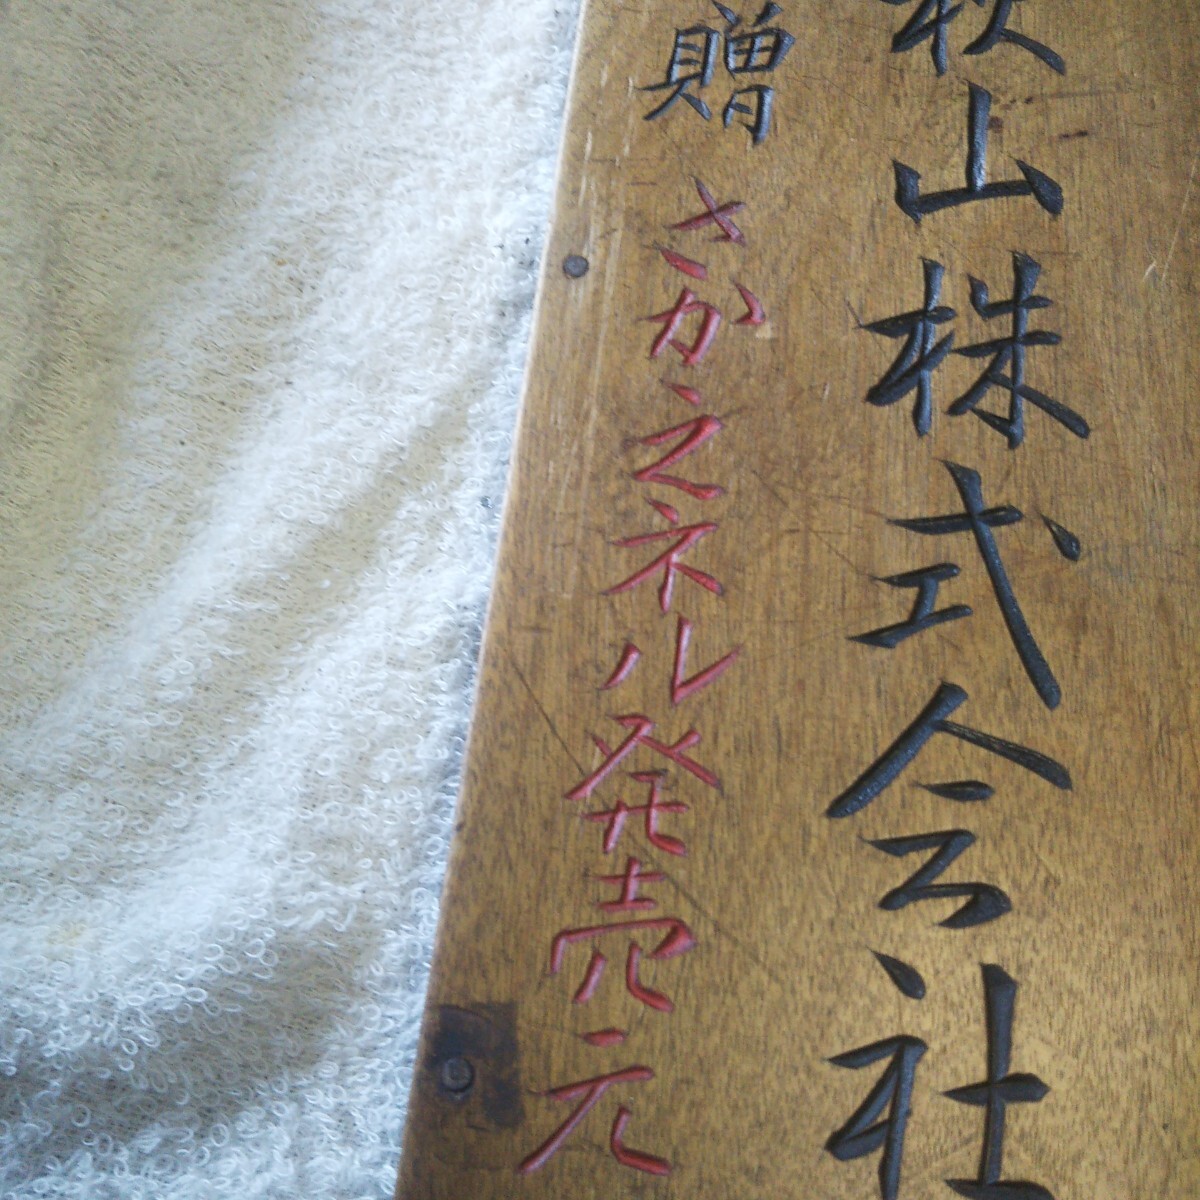 山株式会社
贈 さかえネル発売元